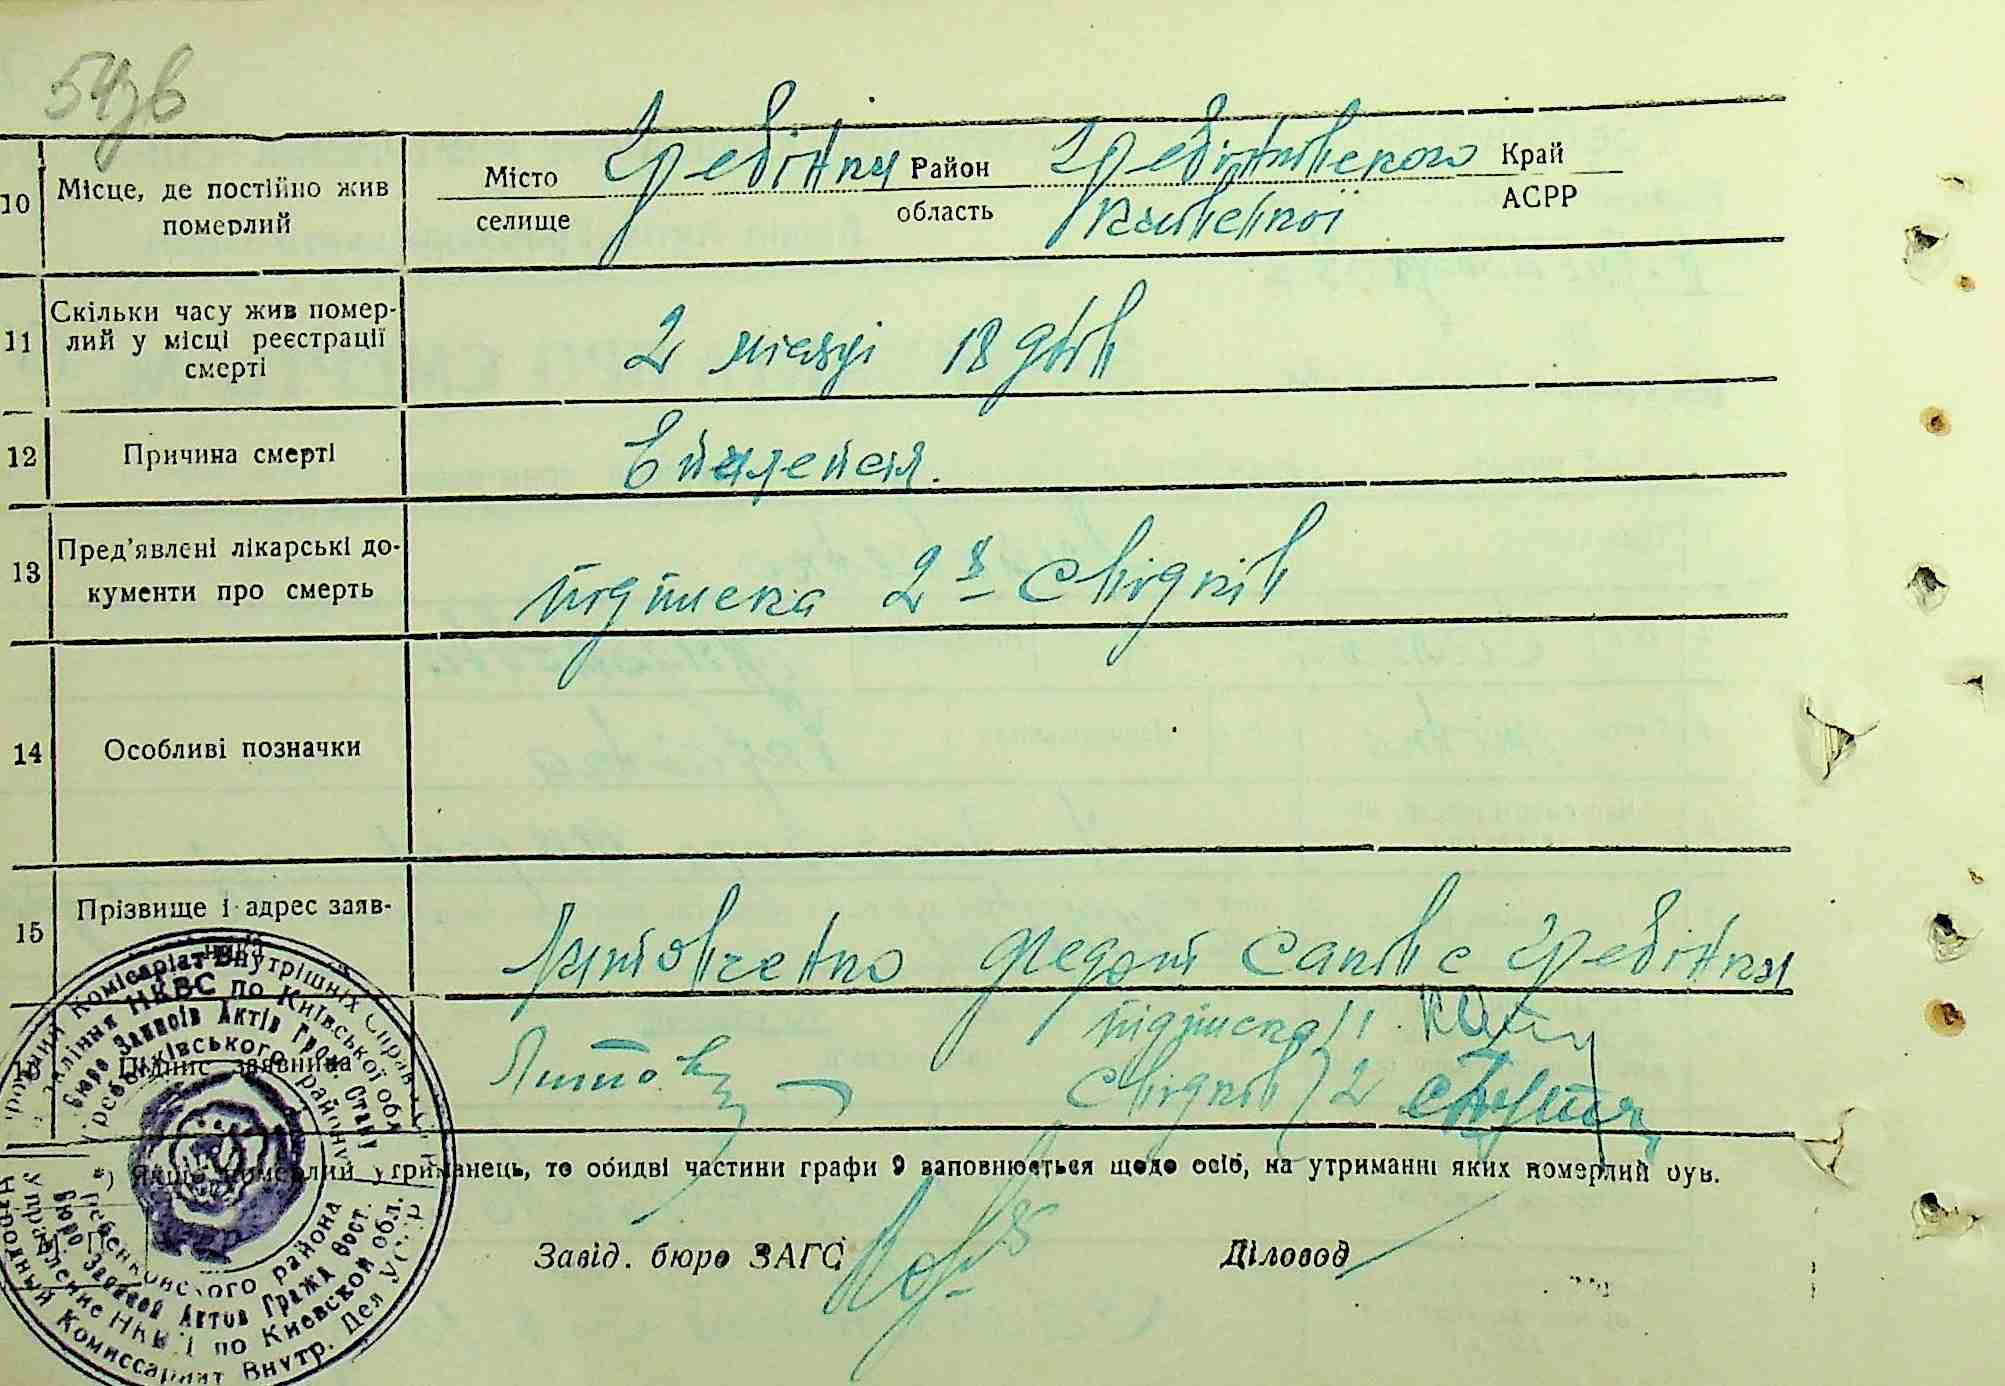 54зв
10 Місце, де постійно жив померлий Місто селище Гребінки Район область Гребінківського Київської Край АСРР
11 Скільки часу жив помер-
лий у місці реєстрації
смерті
2 місяці 18 днів
12 Причина смерті Епилепсія.
13 Пред'явлені лікарські до-
кументи про смерть
підписка 2х свідків
14 Особливі позначки
15 Прізвище і адрес заяв-
ника
Литовченко Федот Саків с Гребінки
16 Підпис заявника Литов
підписка 1.
свідків 2
*) Якщо померлий утриманець, то обидві частини графи 9 заповнюється щодо осіб, на утриманні яких померлий був.
М. П.
Завід. бюро ЗАГС Діловод
Народний Комісаріат Внутрішніх Справ УСРР
Управління НКВС по Київській обл.
Бюро Записів Актів Гром. Стану
Гребінківського району
Гребенковского района
Бюро Записей Актов Гражд. Сост.
Управление НКВД по Киевской обл.
Народный Комиссариат Внутр. Дел УССР